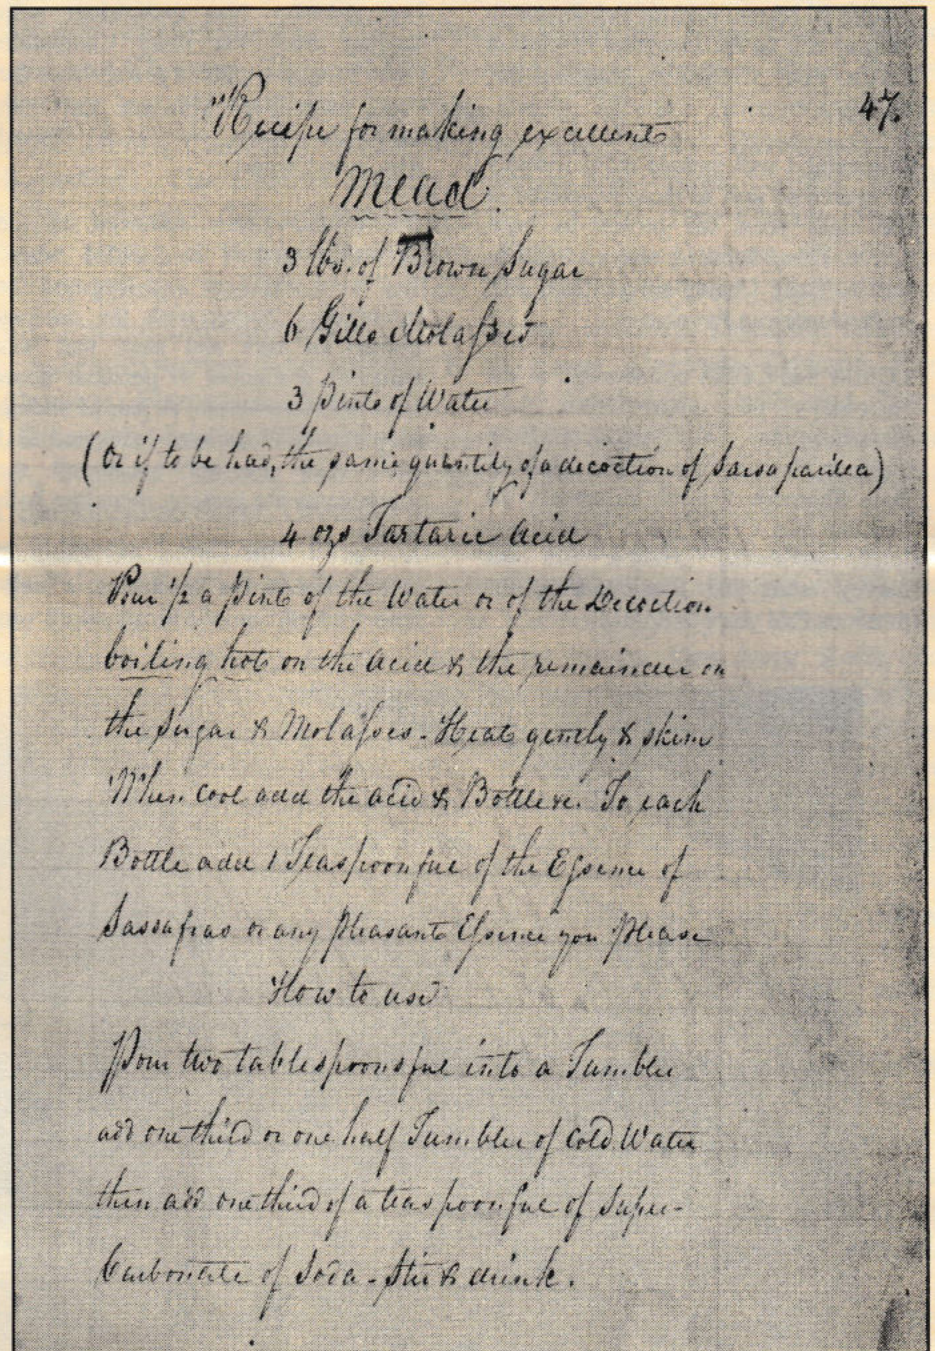 47.
Recipe for making excellent
Mead.
3 lbs. of Brown Sugar
6 Gills Molasses
3 Pints of Water
(Or if to be had, the same quantity of a decoction of Sarsaparilla)
4 ozs Tartaric Acid
Pour 1/2 a Pint of the Water or of the Decoction
boiling hot on the acid & the remainder on
the Sugar & Molasses - Heat gently & skim
When cool add the acid & Bottle &c. To each
Bottle add 1 Teaspoonful of the Essence of
Sassafras or any Pleasant Essence you Please
How to use
Pour two tablespoonsful into a Tumbler
add one third or one half Tumbler of Cold Water
then add one third of a teaspoonful of Super-
Carbonate of Soda - Stir & drink.